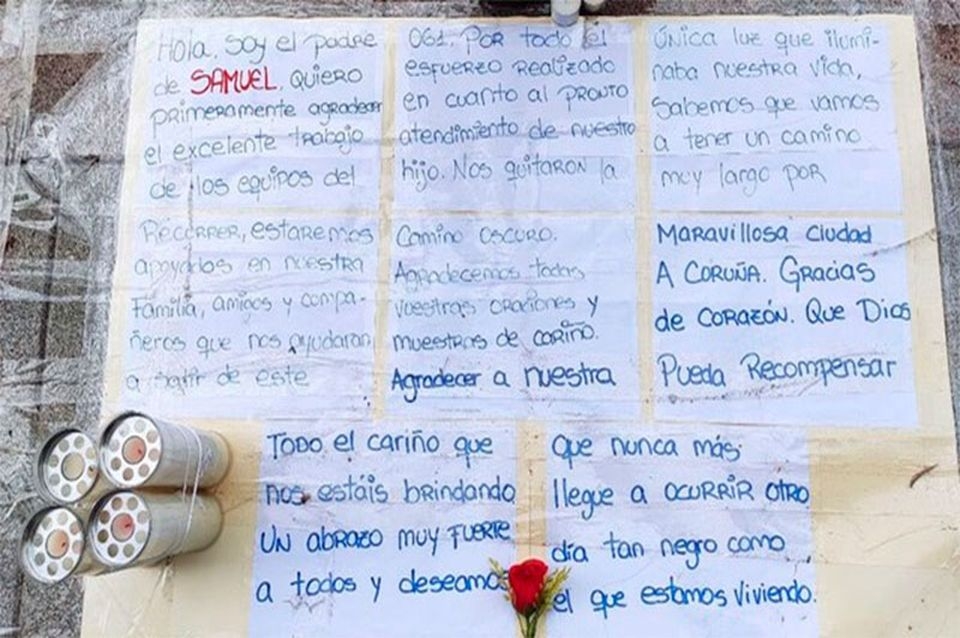 Hola, soy el padre
de SAMUEL, quiero
primeramente agradecer
el excelente trabajo
de los equipos del
061. Por todo el
esfuerzo realizado
en cuanto al pronto
atendimiento de nuestro
hijo. Nos quitaron la
única luz que ilumi-
naba nuestra vida,
Sabemos que vamos
a tener un camino
muy largo por
Recorrer, estaremos
apoyados en nuestra
familia, amigos y compa-
ñeros que nos ayudaran
a salir de este
Camino oscuro.
Agradecemos todas
vuestras oraciones y
muestras de cariño.
Agradecer a nuestra
Maravillosa ciudad
A Coruña. Gracias
de corazón. Que Dios
Pueda Recompensar
Todo el cariño que
nos estáis brindando
Un abrazo muy fuerte
a todos y deseamos
que nunca más
llegue a ocurrir otro
día tan negro como
el que estamos viviendo.